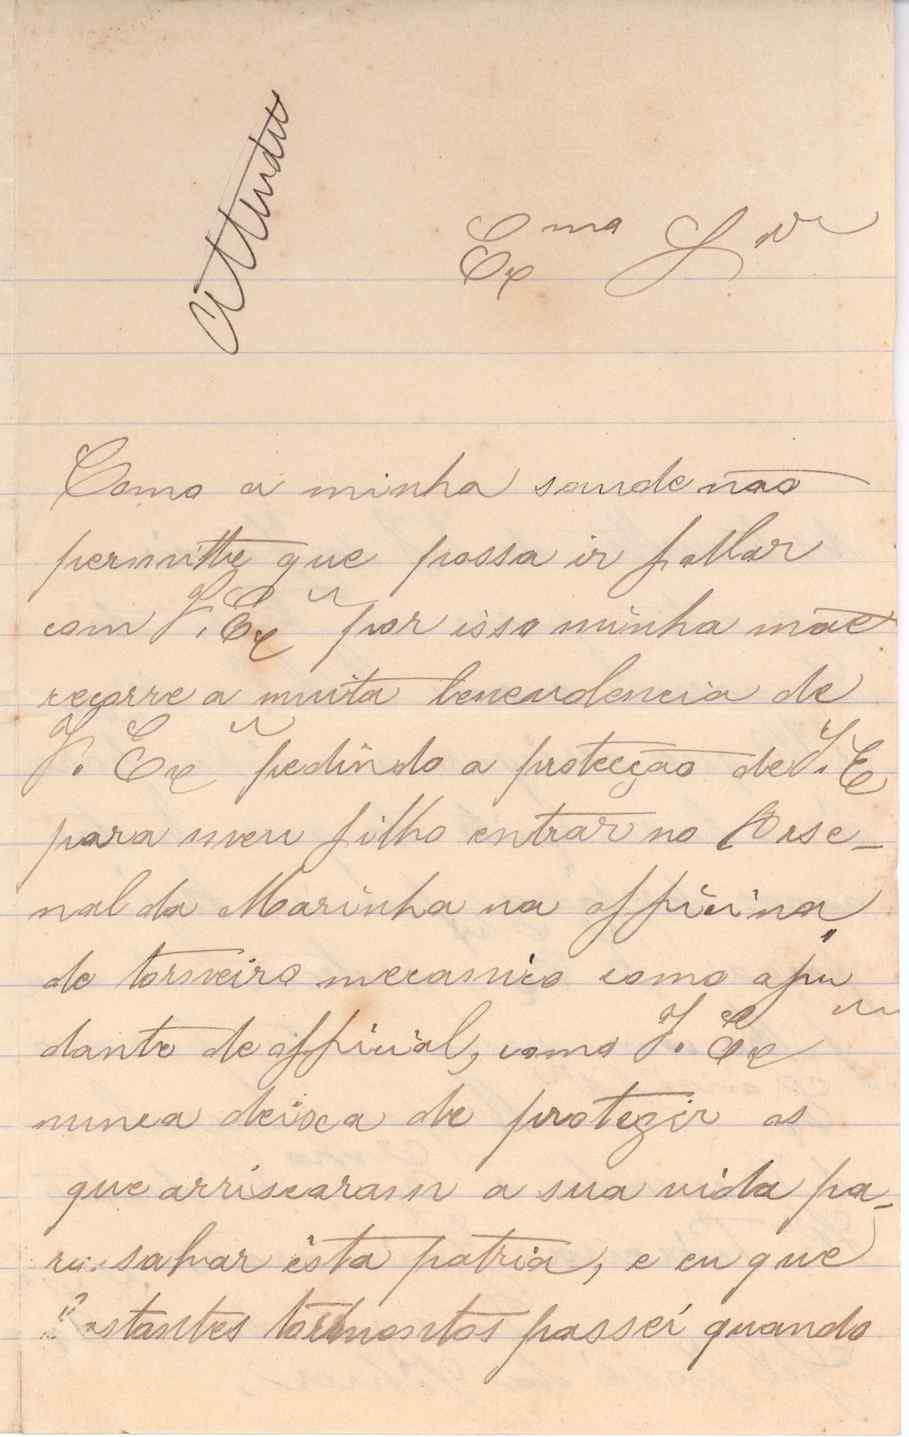 Attendido
Exma Snr
Como a minha saude não
permitte que possa ir fallar
com V. Exa por isso minha mãe
recorre a muita benevolencia de
V. Exa pedindo a protecção de V. Ex
para meu filho entrar no Arse-
nal da Marinha na officina
de torneiro mecanico como aju
dante de official, como V. Exa
nunca deixa de protegir os
que arriscaram a sua vida pa-
ra salvar esta patria, e eu que
tormentos passei quando